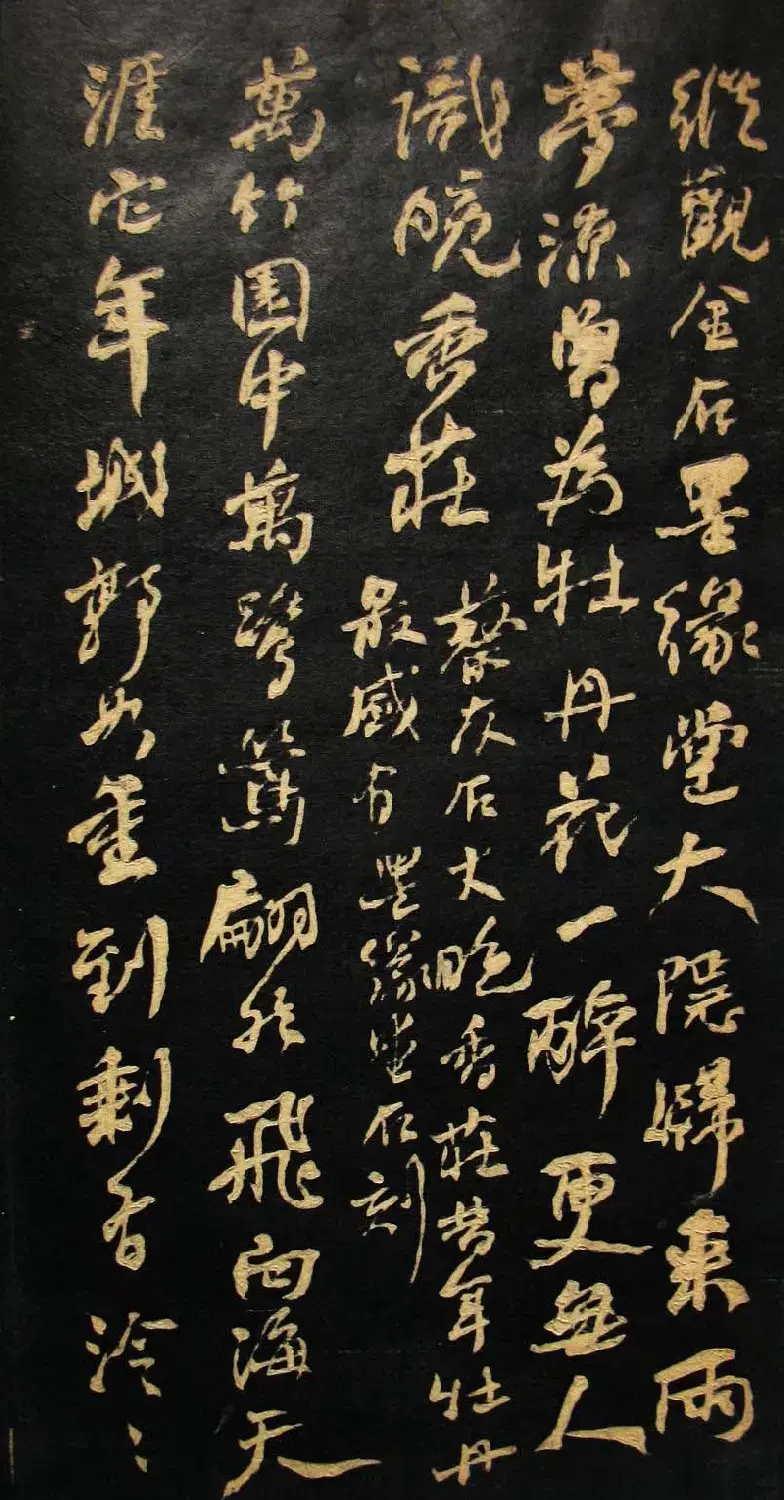 縱觀金石墨緣堂大隱歸來兩
夢涼曾為牡丹花一醉更無人
識晚香莊
蔡友石大晚香莊昔年牡丹
最盛有墨緣堂石刻
萬竹園中萬鷺鷥翩然飛向海天
涯它年城郭如重到剩看泠〻